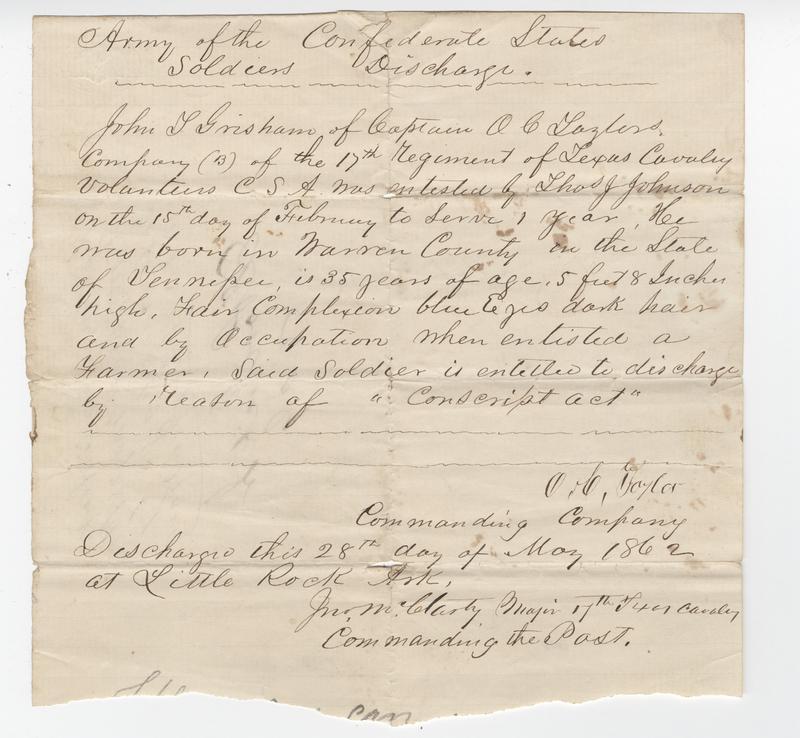 Army of the Confederate States
Soldiers Discharge.
John T Grisham of Captain O C Taylors
Company (B) of the 17th Regiment of Texas Cavalry
Volunteers C S A was entisted by Thos J Johnson
on the 15th day of February to serve 1 year, He
was born in Warren County in the State
of Tennessee, is 35 years of age, 5 feet 8 Inches
high, Fair Complexion blue Eyes dark hair
and by Occupation when entisted a
Farmer, Said Soldier is entitled to discharge
by Reason of "Conscript act"
O. C. Taylor
Commanding Company
Discharged this 28th day of May 1862
at Little Rock Ark,
Jno, Mc Clarty Major 17th Texas Cavalry
Commanding the Post.